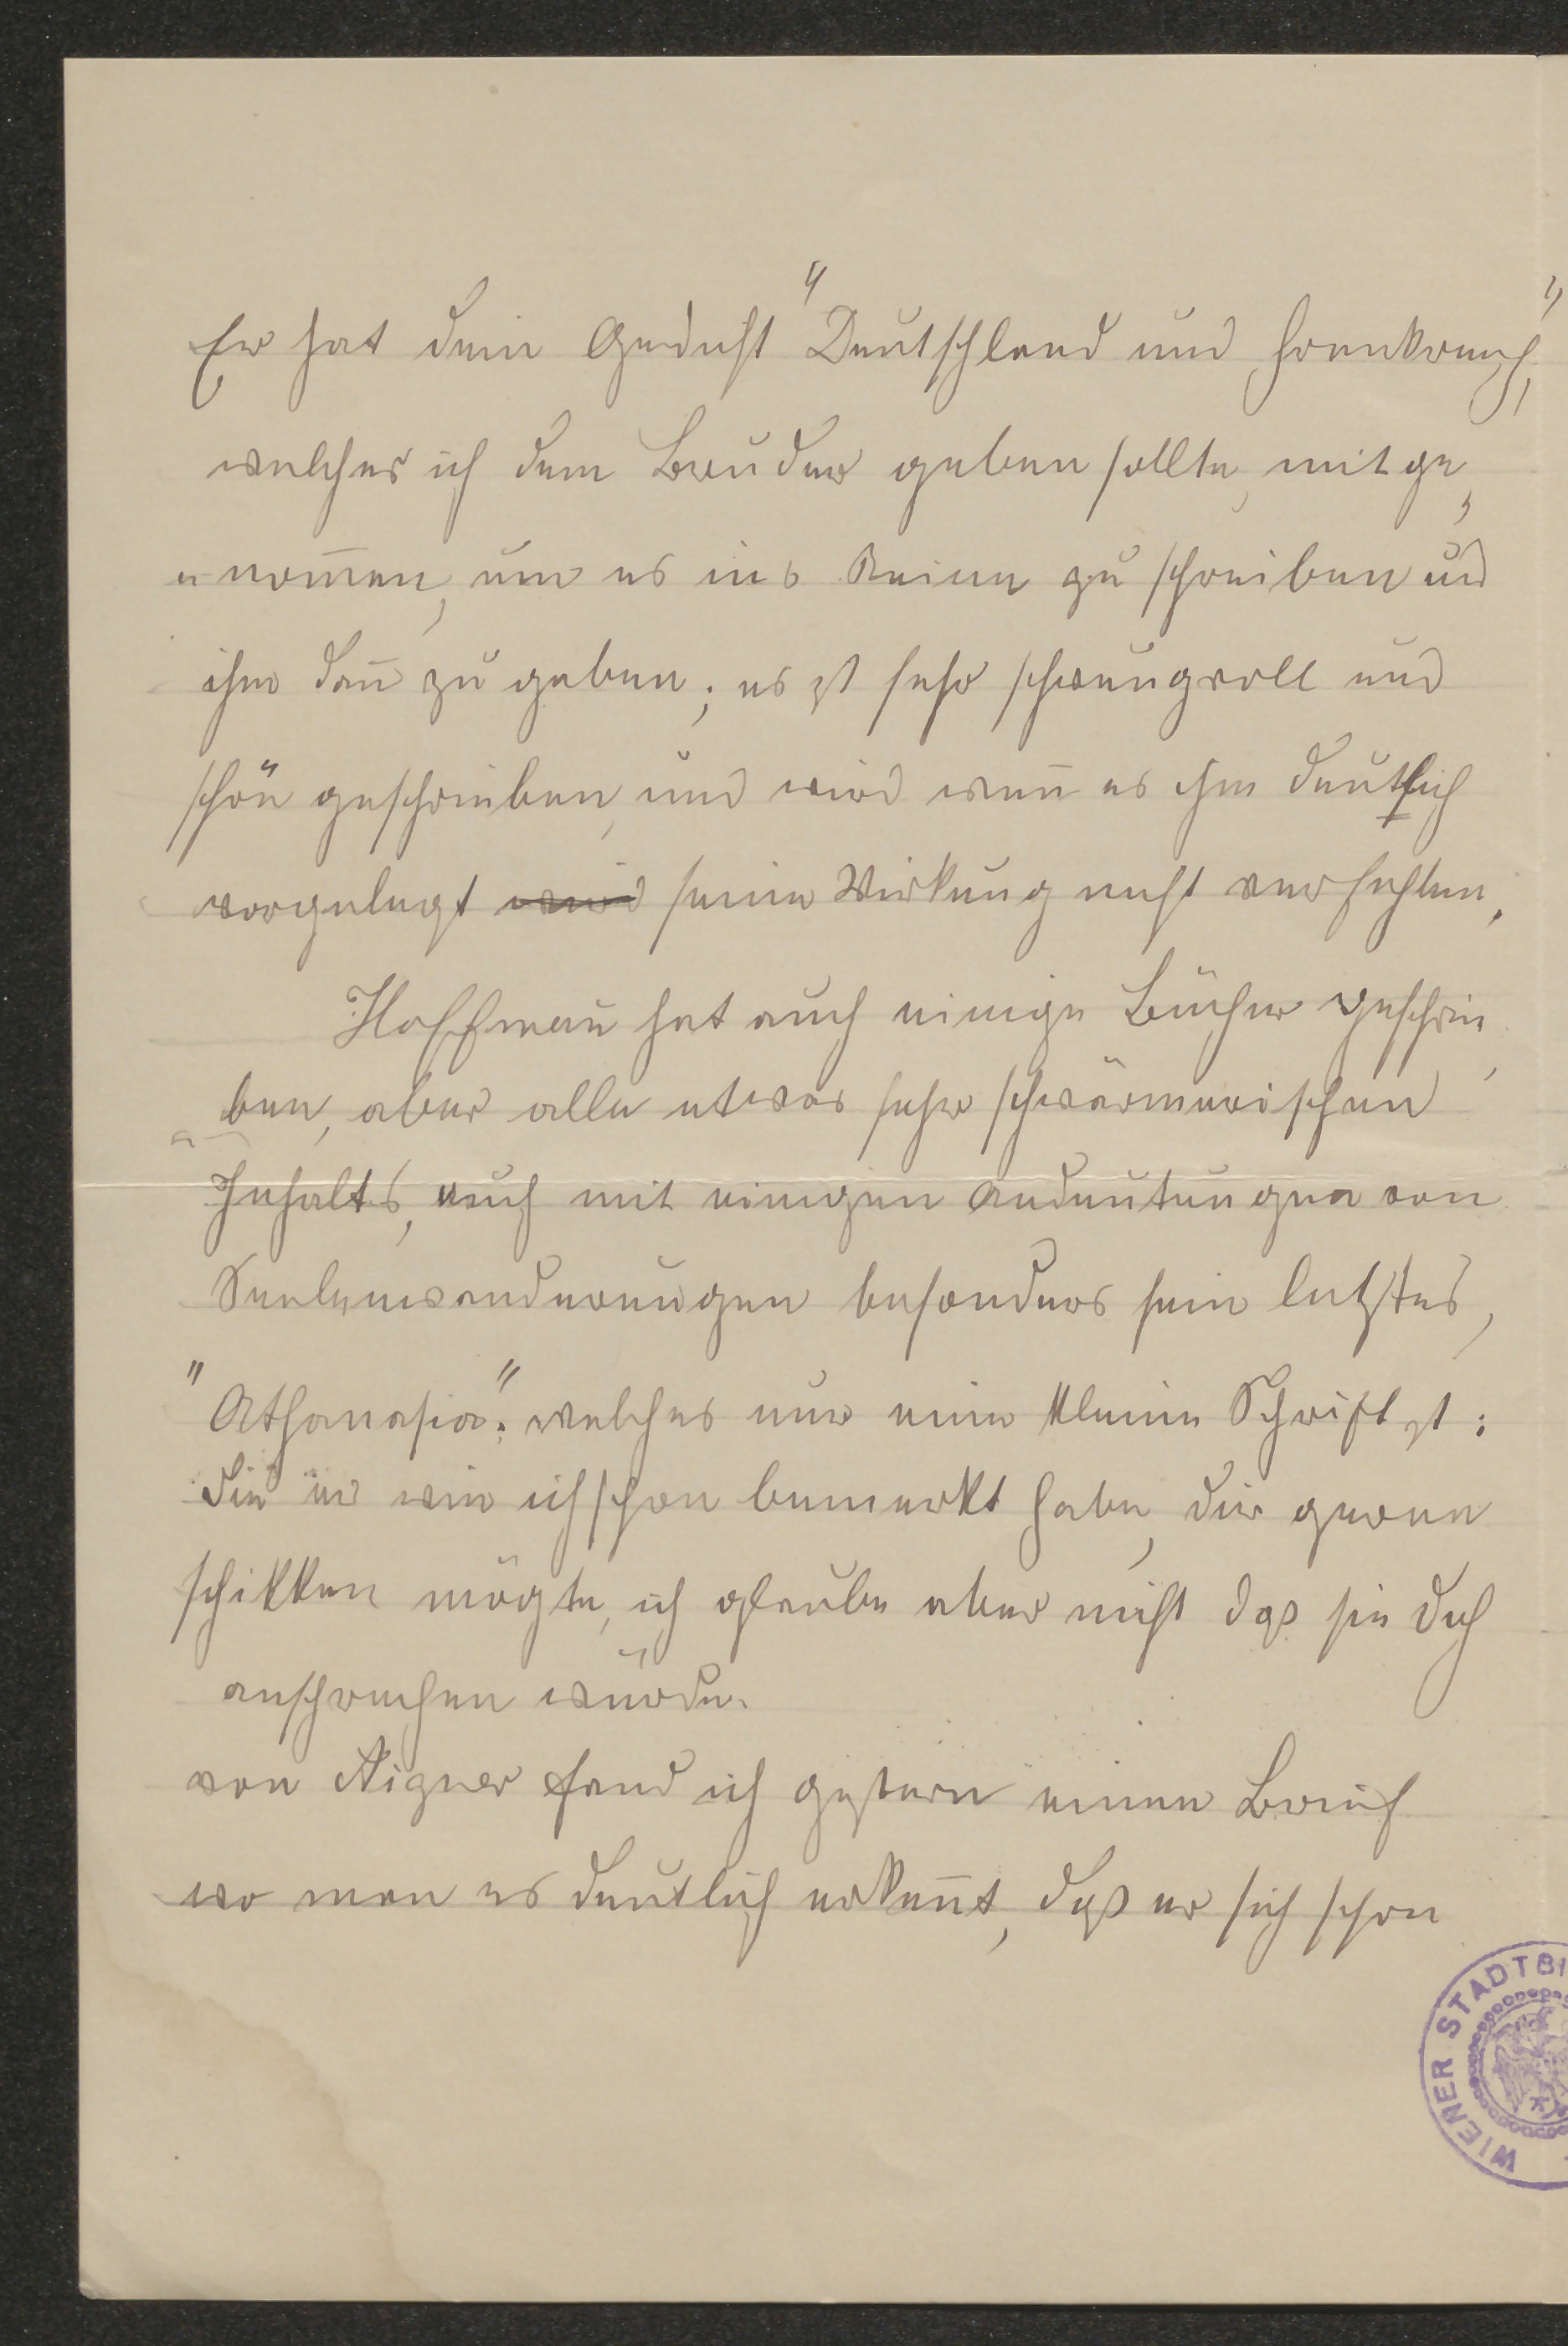 Er hat dein Gedicht "Deutschland und Frankreich,"
welches ich dem Bruder geben sollte, mitge„
„nom̅en, um es ins Reine zu schreiben und
ihm dan̅ zu geben; es ist sehr schwungvoll und
schön geschrieben, und wird wen̅ es ihm deutlich
vorgelegt wird seine Wirkung nicht verfehlen.
Hoffman̅ hat auch einige Bücher geschrie„
ben, aber alle etwas sehr schwärmerischen
Inhalts, auch mit einigen Andeutungen von
Seelenwanderungen besonders sein letztes,
"Athanasia"; welches nur eine kleine Schrift ist;
die wie ich schon bemerkt habe, dir gerne
schikken mögte, ich glaube aber nicht daß sie dich
ansprechen würde.
von Aigner fand ich gestern einen Brief
wo man es deutlich erken̅t, daß er sich schon
WIENER STADTBI